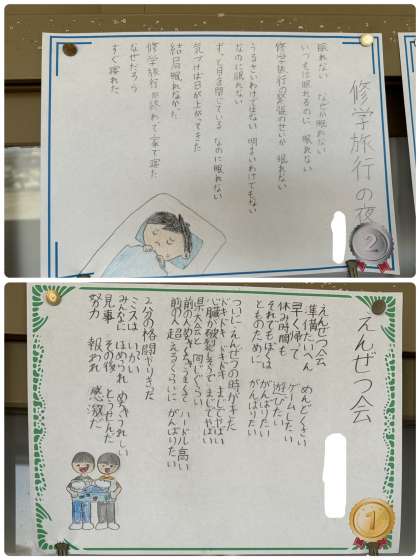 修学旅行の夜
眠れない なぜか眠れない
いつもは眠れるのに 眠れない
修学旅行の緊張のせいか 眠れない
うるさいわけではない 明るいわけでもない
なのに眠れない
ずっと目を閉じている なのに眠れない
気づけば日が上がってきた
結局眠れなかった
修学旅行が終わって家で寝た
なぜだろう
すぐ寝れた
2
えんぜつ会
えんぜつ会
準備たいへん めんどくさい
早く帰って ゲームしたい
休み時間も 遊びたい
それでもぼくは がんばりたい
とものために がんばりたい
ついにえんぜつの時がきた
ドキドキドキドキ まじでやばい
心臓が破裂しそう まじでやばい
県大会と同じぐらい
前の人めっちゃうまくて ハードル高い
前の人超えるぐらいに がんばりたい
2分の格闘やりきった
ミスはいっかい
みんなにほめられ めちゃうれしい
見事 その後 とうせんだ
努力 報われ 感激だ
1